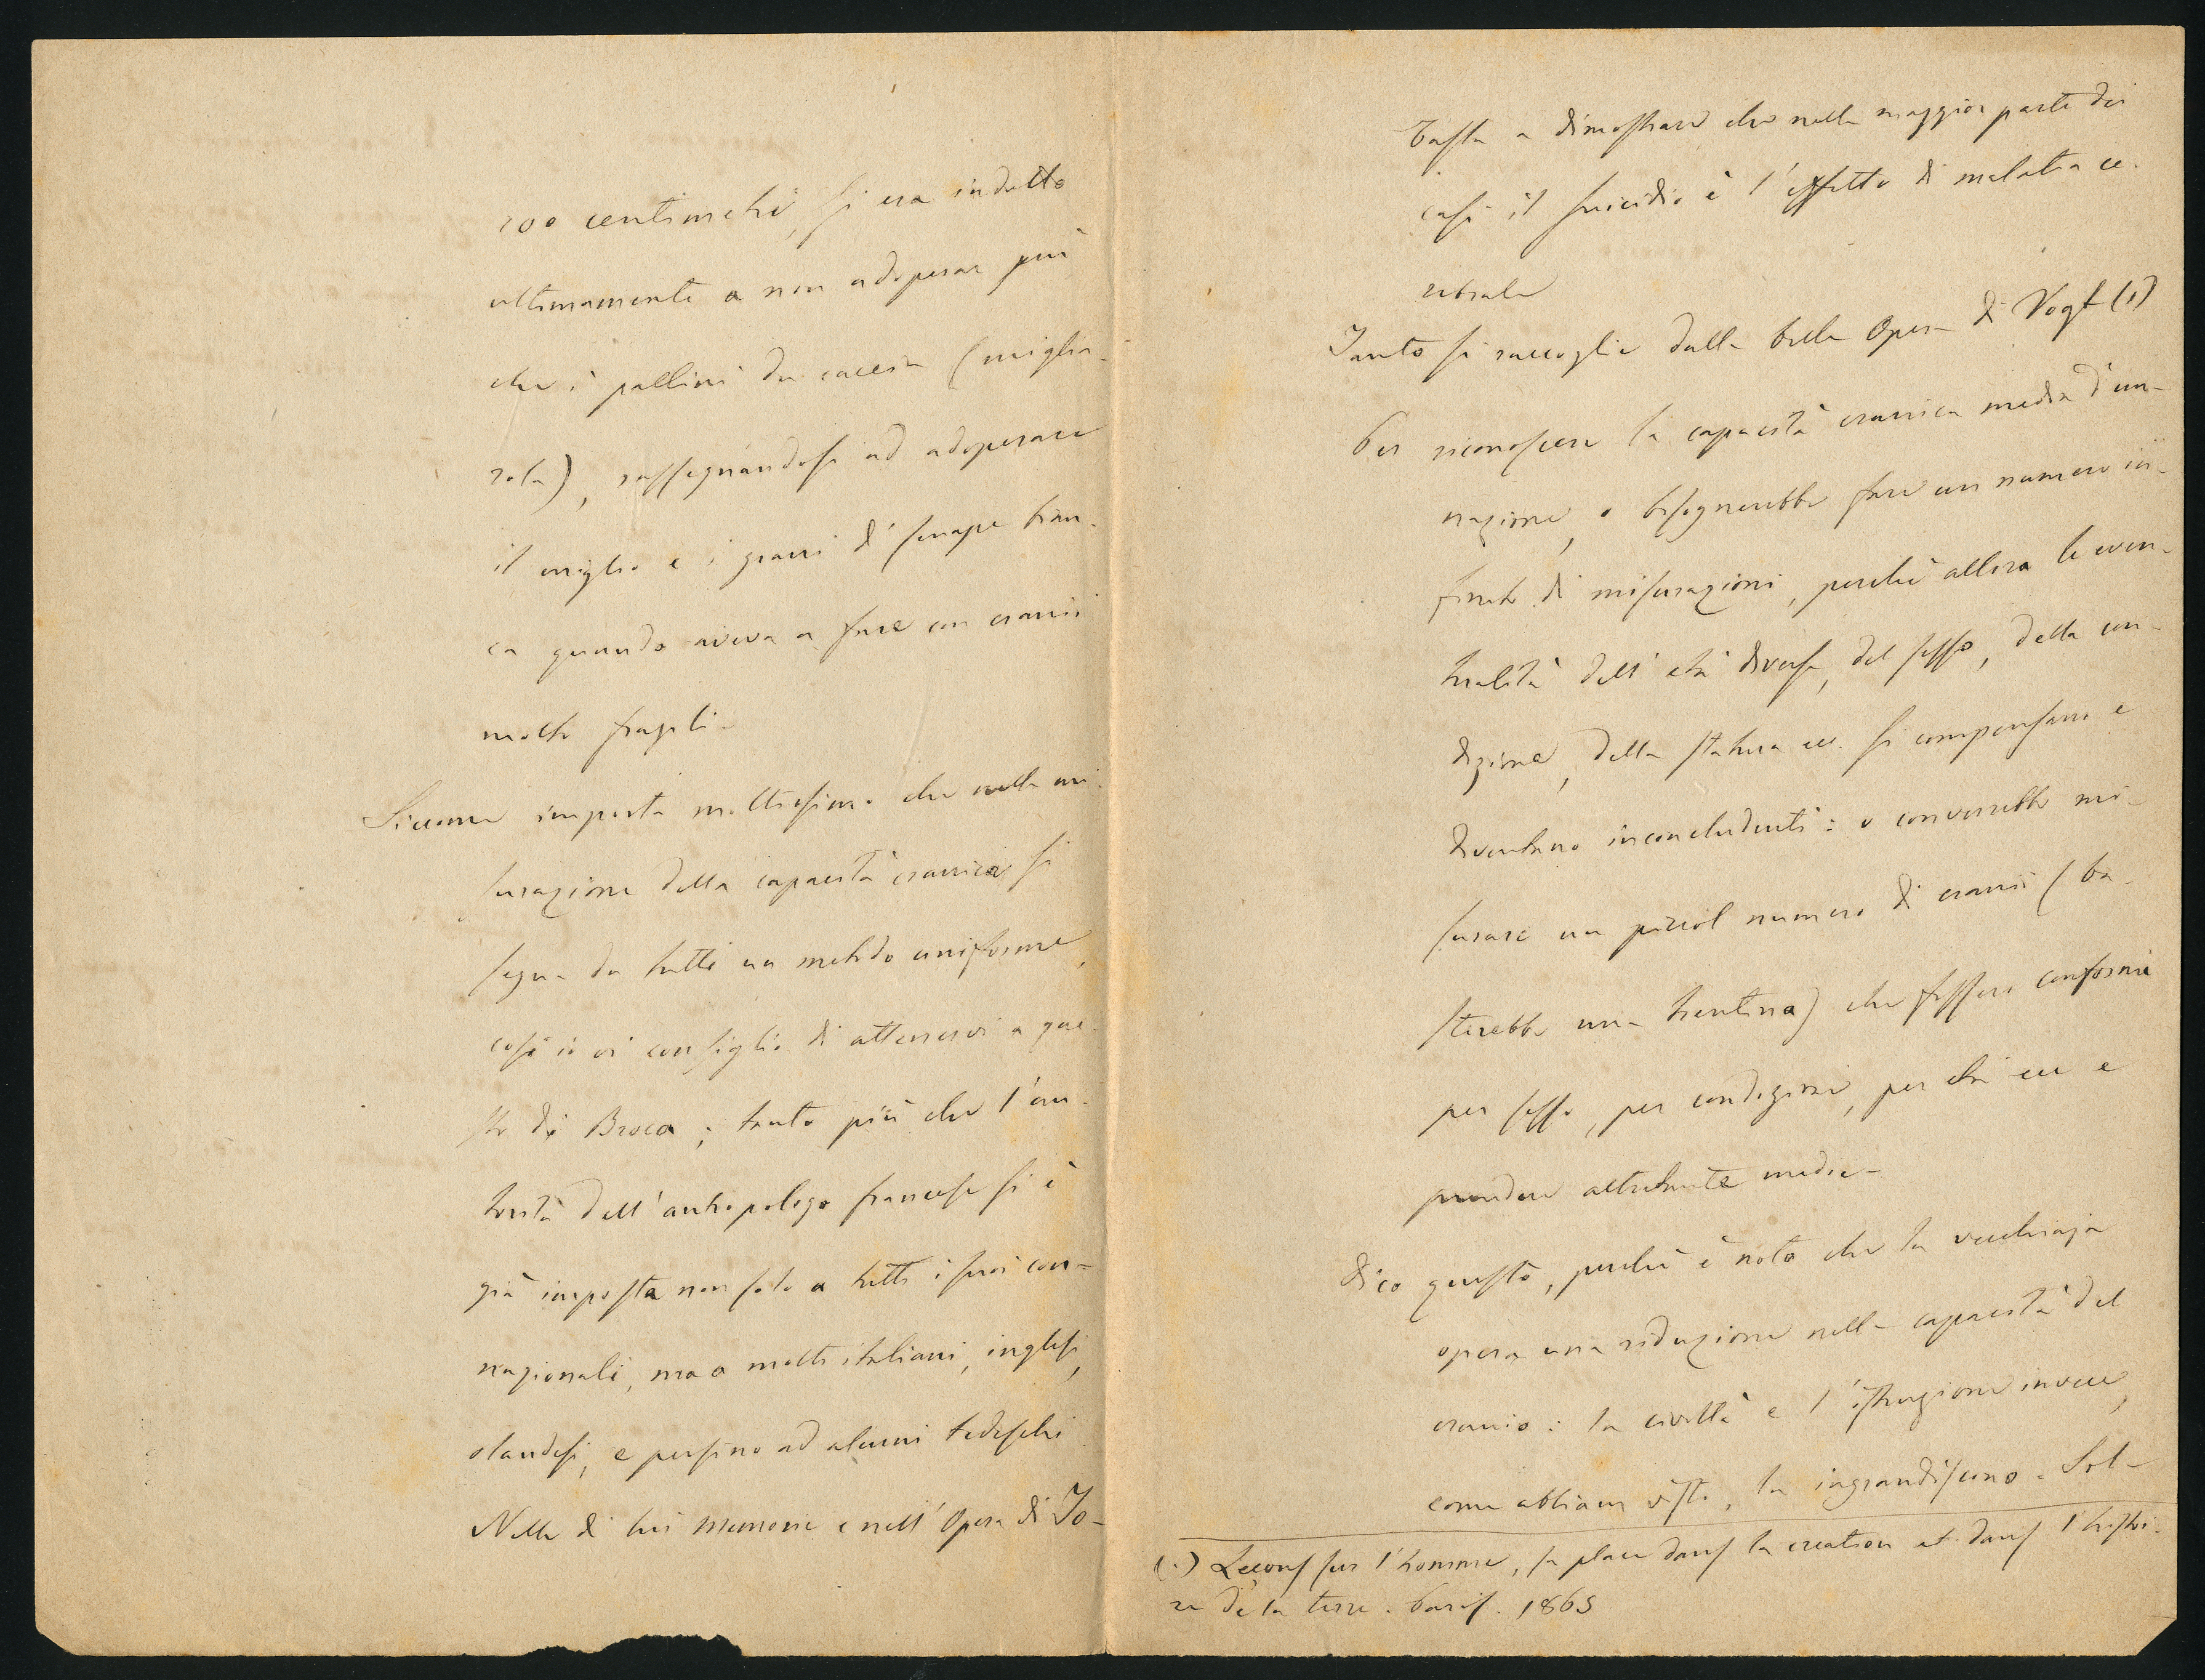 100 centimetri, si era indotto
ultimamente a non adoperar più
che i pallini da caccia (miglia-
rola), rassegnandosi ad adoperare
il miglio e i grani di senape bian-
ca quando aveva a fare con cranii
molto fragili-
Siccome importa moltissimo che nella mi-
surazione della capacità cranica si
segua da tutti un metodo uniforme,
così io vi consiglio di attenervi a que-
sto di Broca; tanto più che l'au-
torità dell'antropologo francese si è
già imposta non solo a tutti i suoi con-
nazionali, ma a molti italiani, inglesi,
olandesi, e persino ad alcuni tedeschi
Nelle di lui Memorie e nell'Opera di To-
basta a dimostrare che nella maggior parte dei
casi il suicidio è l'effetto di malatia ce-
rebrale
Tanto si raccoglie dalla bella Opera di Vogt (1)
Per riconoscere la capacità cranica media d'un-
nazione, o bisognerebbe fare un numero in-
finito di misurazioni, perchè allora le even-
tualità dell'età diversa, del sesso, della con-
dizione, della statura ecc. si compensano e
diventano inconcludenti: o converrebbe mi-
surare un piccol numero di cranii (ba-
sterebbe una trentina) che fossero conformi
per sesso, per condizione, per età ecc e
prendere altretante medie-
Dico questo, perchè è noto che la vecchiaja
opera una riduzione nella capacità del
cranio: la civiltà e l'istruzione invece,
come abbiam visto, la ingrandiscono. Sol-
(1) Leçons sur l'homme, sa place dans la creation et dans l'histoi-
re de la terre. Paris. 1865